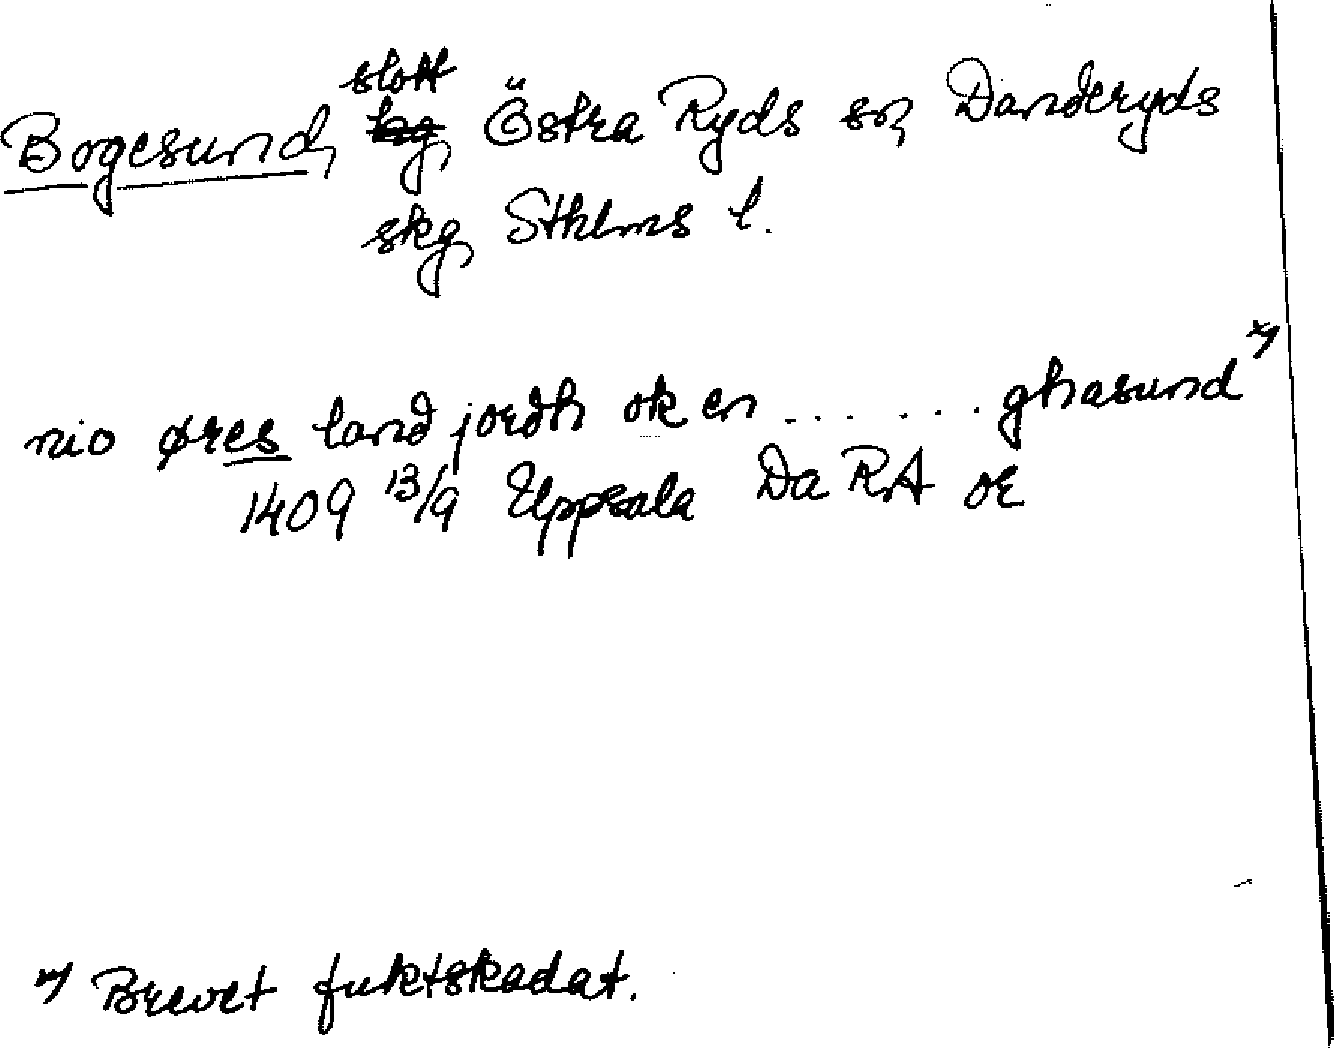 slott
Bogesund, hg, Östra Ryds sn, Danderyds
skg, Sthlms l.
nio øres land jordh ok en ...... ghasund *)
1409 13/9 Uppsala Da RA or
*) Brevet fuktskadat.